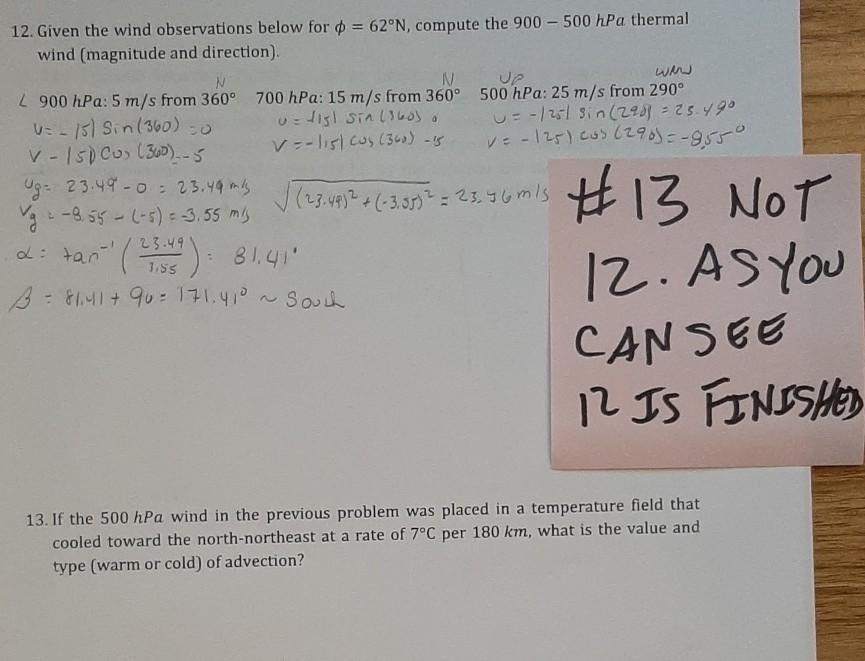 12. Given the wind observations below for ϕ = 62°N, compute the 900 – 500 hPa thermal
wind (magnitude and direction).
N N UP WNW
L 900 hPa: 5 m/s from 360° 700 hPa: 15 m/s from 360° 500 hPa: 25 m/s from 290°
u = - |5| Sin(360) = 0 u = -|15| Sin (360) 0 u = -|25| Sin(290) = 23.49°
v - |5| Cos (360) = -5 v = -|15| cos (360) -15 v = -|25| cos (290) = -8.55°
ug = 23.49 - 0 = 23.49 m/s √(23.49)² + (-3.55)² = 23.76 m/s
vg = -8.55 - (-5) = -3.55 m/s
α = tan⁻¹ (23.49/3.55) = 81.41°
β = 81.41 + 90 = 171.41° ~ South
#13 NOT
12. AS YOU
CAN SEE
12 IS FINISHED
13. If the 500 hPa wind in the previous problem was placed in a temperature field that
cooled toward the north-northeast at a rate of 7°C per 180 km, what is the value and
type (warm or cold) of advection?